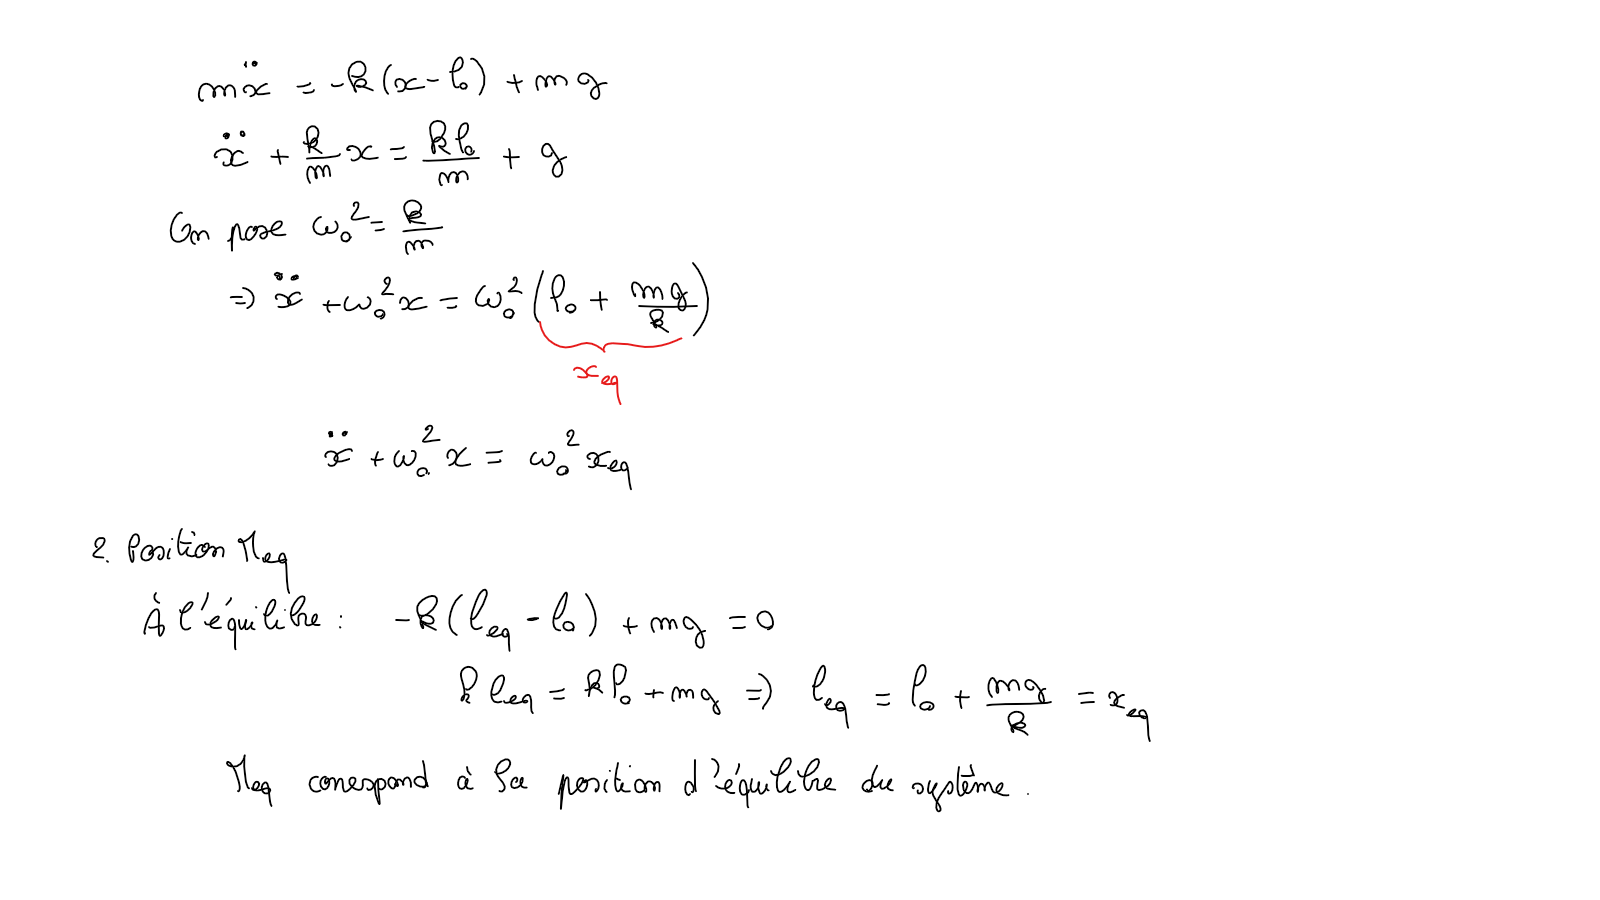 mẍ = -k(x - l₀) + mg
ẍ + k/m x = kl₀/m + g
On pose ω₀² = k/m
⇒ ẍ + ω₀² x = ω₀² (l₀ + mg/k)
x_eq
ẍ + ω₀² x = ω₀² x_eq
2. Position M_eq
À l'équilibre : -k(l_eq - l₀) + mg = 0
k l_eq = k l₀ + mg ⇒ l_eq = l₀ + mg/k = x_eq
M_eq correspond à la position d'équilibre du système.